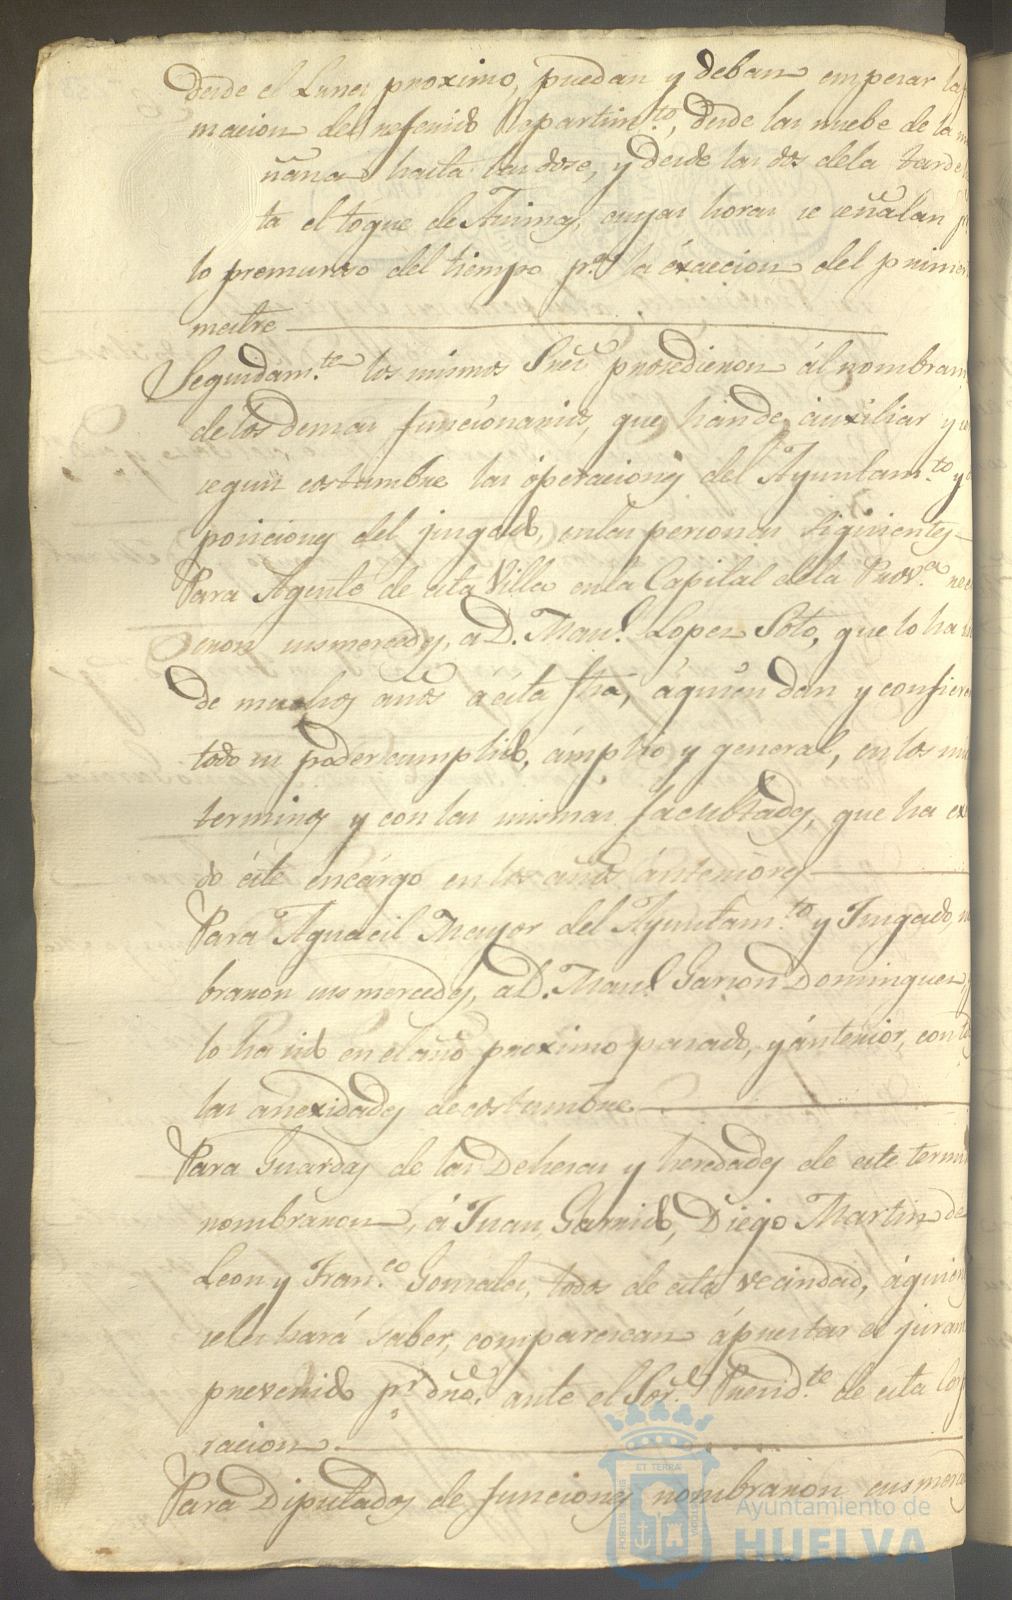 desde el Lunes proximo, puedan y deban empesar la
macion del referido repartim.to, desde las nuebe de la ma
ñana hasta las dose, y desde las dos dela tarde
ta el toque de Animas, cuyas horas se señalan p
lo premuroso del tiempo p.a la éxaccion del primer
mestre
Seguidam.te los mismos Sres prosedieron ál nombram
delos demas funcionarios, que hande áuxiliar y
segun costumbre las óperaciones del Ayuntam.to y
posiciones del jusgado, enlas personas siguientes
Para Agente de esta Villa enla Capital dela Prov.a
eron susmercedes, a D. Man.l Lopez Soto, que lo ha
de muchos años á ésta fha, áquien dan y confiere
todo su poder cumplido, ámplio y general, en los mis
terminos y con las mismas facultades, que ha ex
do éste encargo en los años ánteriores
Para Aguacil Mayor del Ayuntam.to y Jusgado,
braron susmercedes, a D. Man.l Garson Dominguez
lo ha sido en el año proximo pasado, y ánterior, con
las anexidades de costumbre
Para Guardas de las Dehesas y heredades de este termi
nombraron, á Juan Garrido, Diego Martin de
Leon y Fran.co Gonzales, todos de esta vecindad, áquien
seles hará saber, comparescan áprestar el juram
prevenido p.r dro. ante el Sor. Presid.te de esta Cor
racion.
Para Diputados de funciones nombraron susmerce
PORTUS MARIS
ET TERRAE
CUSTODIA
Ayuntamiento de
HUELVA